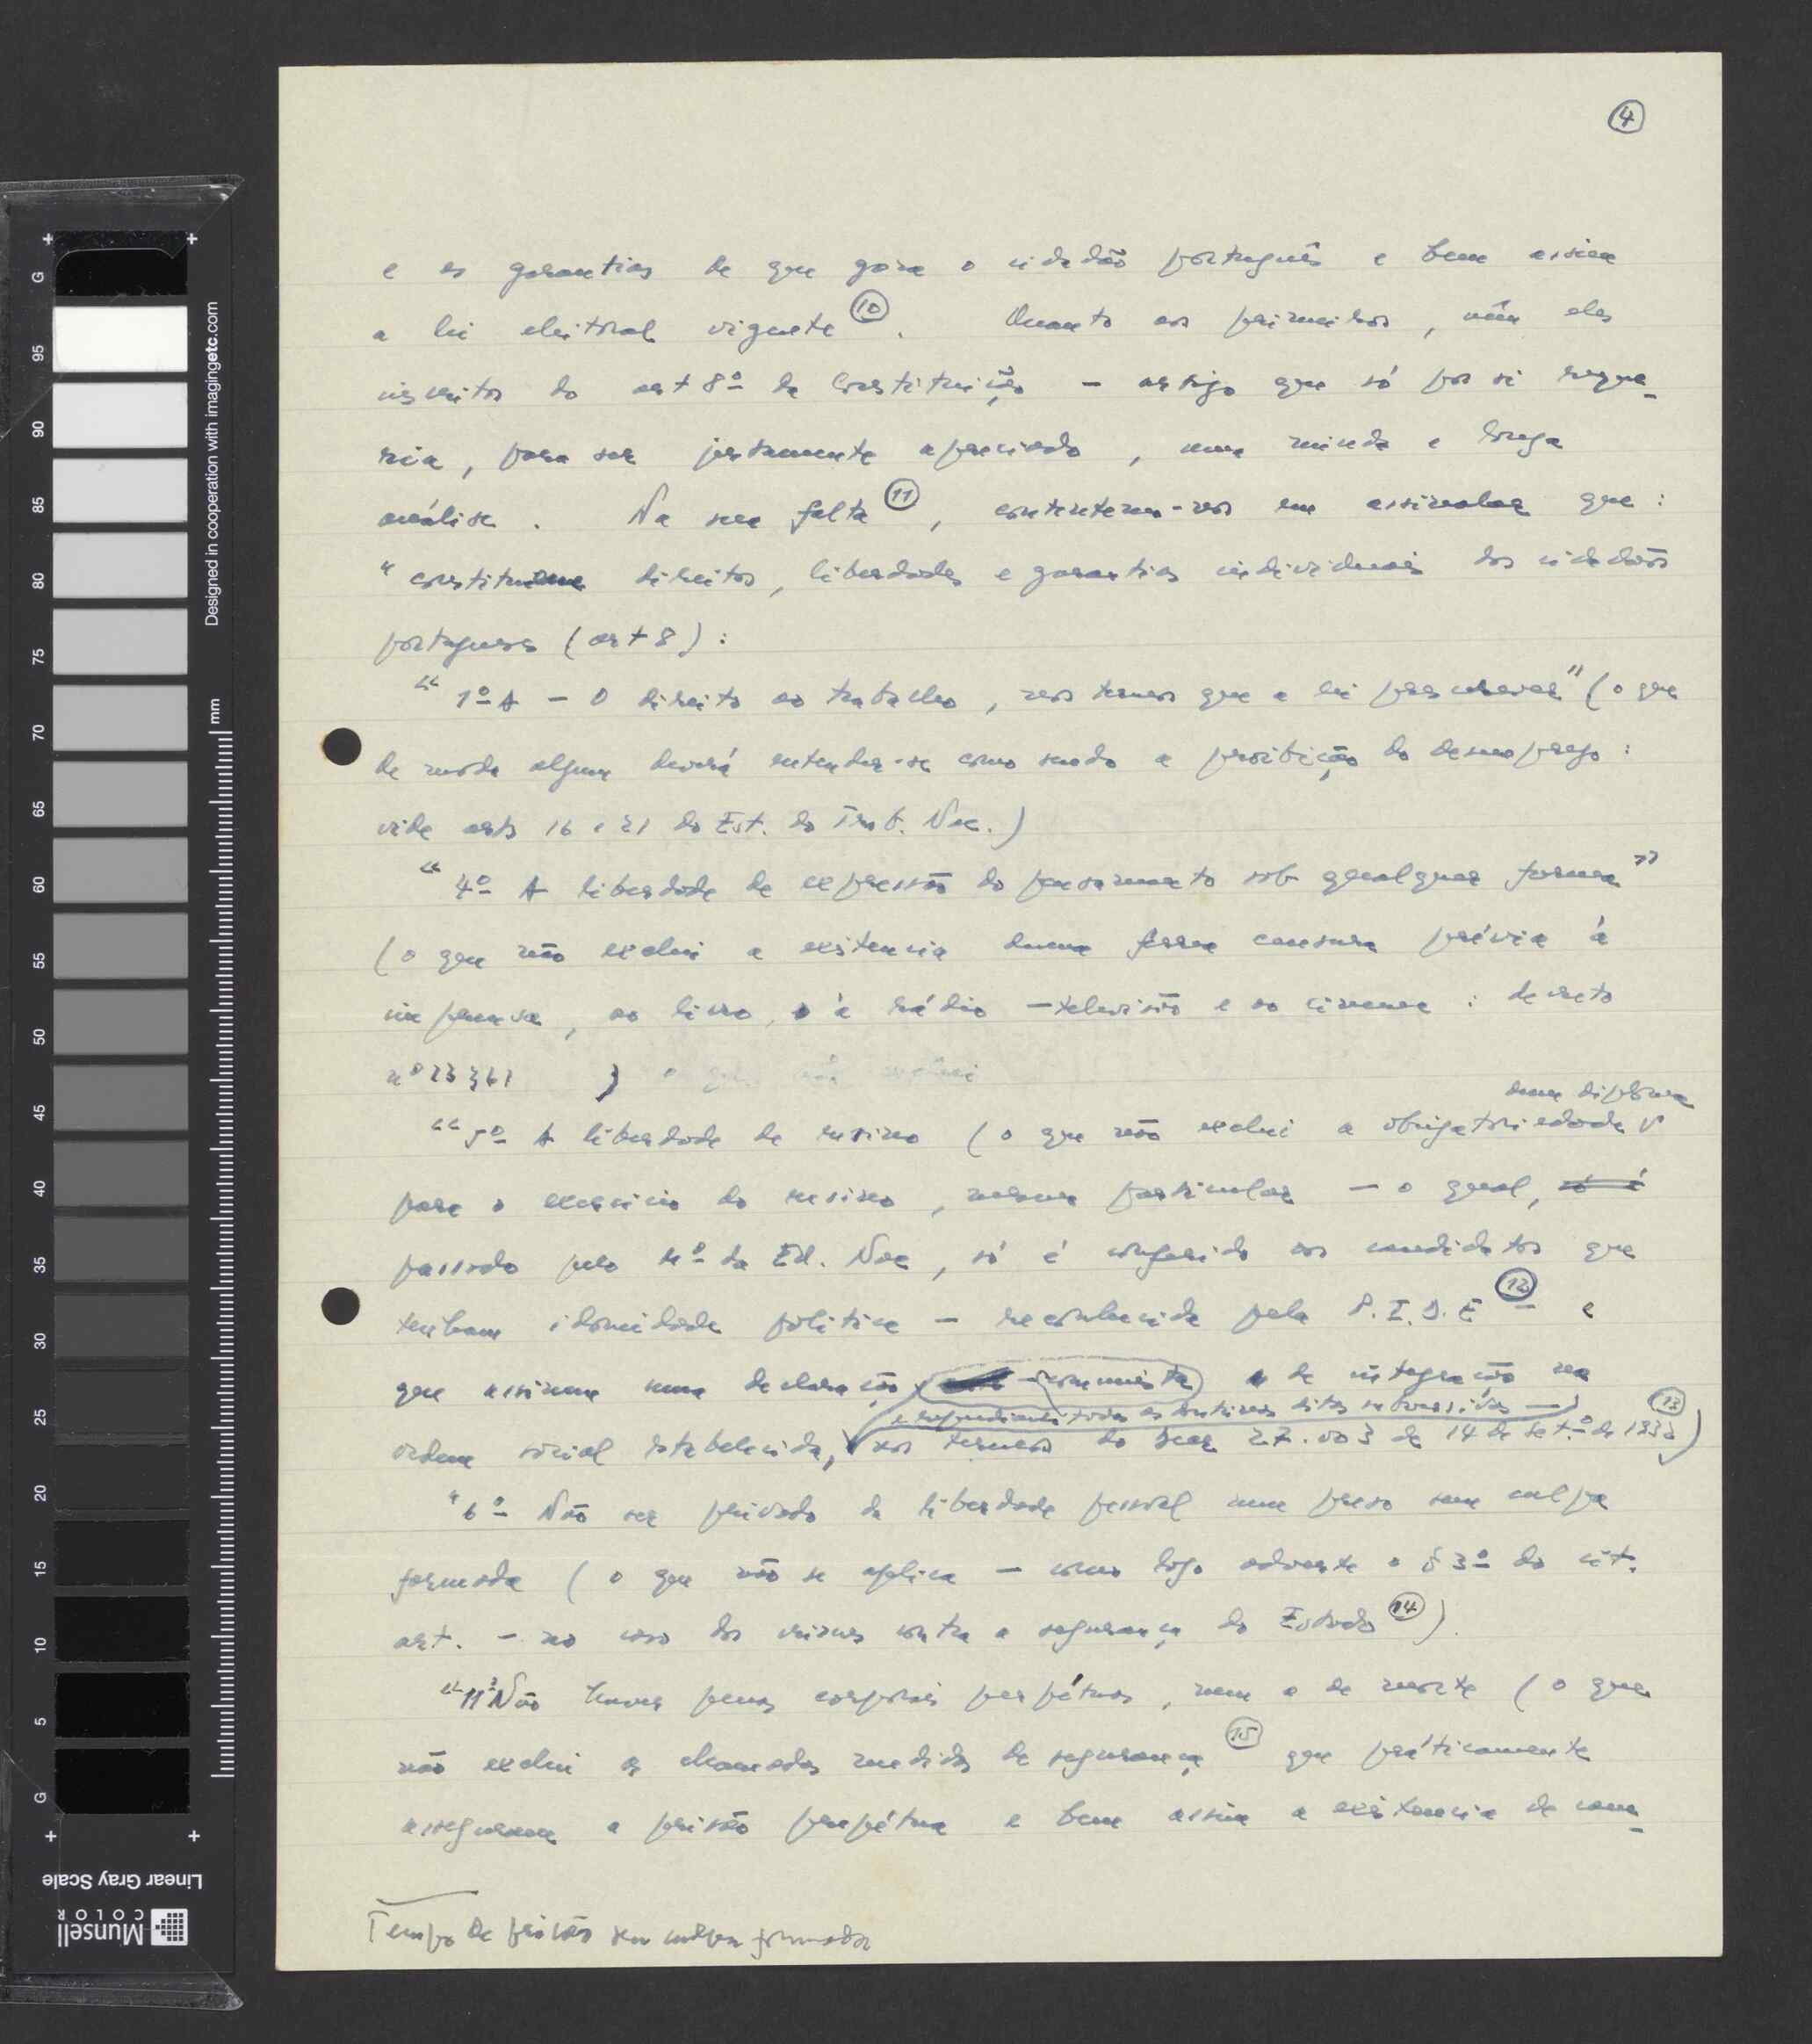 4
e as garantias de que goza o cidadão português e bem assim
a lei eleitoral vigente (10). Quanto aos primeiros, vêm eles
inscritos do art 8º da Constituição – artigo que só por si reque-
ria, para ser justamente apreciado, uma miuda e longa
análise. Na sua falta (11), contentemo-nos em assinalar que:
"constituem direitos, liberdades e garantias individuais dos cidadãos
portugueses (art 8):
"1º A – O direito ao trabalho, nos termos que a lei prescrever" (o que
de modo algum deverá entender-se como sendo a proibição do desemprego:
vide arts 16 e 21 do Est. do Trab. Nac.)
"4º A liberdade de expressão do pensamento sob qualquer forma"
(o que não exclui a existencia duma férrea censura prévia à
imprensa, ao livro, à rádio-televisão e ao cinema: decreto
nº 23 361 ) o que não exclui
duma diploma
"5º A liberdade de ensino (o que não exclui a obrigatoriedade
para o exercicio do ensino, mesmo particular – o qual, só é
passado pelo Mº da Ed. Nac, só é conferido aos candidatos que
tenham idoneidade politica – reconhecida pela P.I.D.E (12) – e
que assinem uma declaração comunista de integração na
e repudiante todas as doutrinas ditas subversivas –
ordem social estabelecida, nos termos do 27.003 de 14 de Setº de 1936 (13))
"6º Não ser privado da liberdade pessoal nem preso sem culpa
formada (o que não se aplica – como logo adverte o § 3º do cit.
art. – no caso dos crimes contra a segurança do Estado (14)).
"11º Não haver penas corporais perpétuas, nem a de morte (o que
não exclui as chamadas medidas de segurança (15) que práticamente
asseguram a prisão perpétua e bem assim a existencia de cam-
Tempo de prisão sem culpa formada
Designed in cooperation with imagingetc.com
mm
G
95
90
85
80
75
70
65
60
55
50
45
40
35
30
25
20
15
10
5
G
Linear Gray Scale
Munsell
COLOR